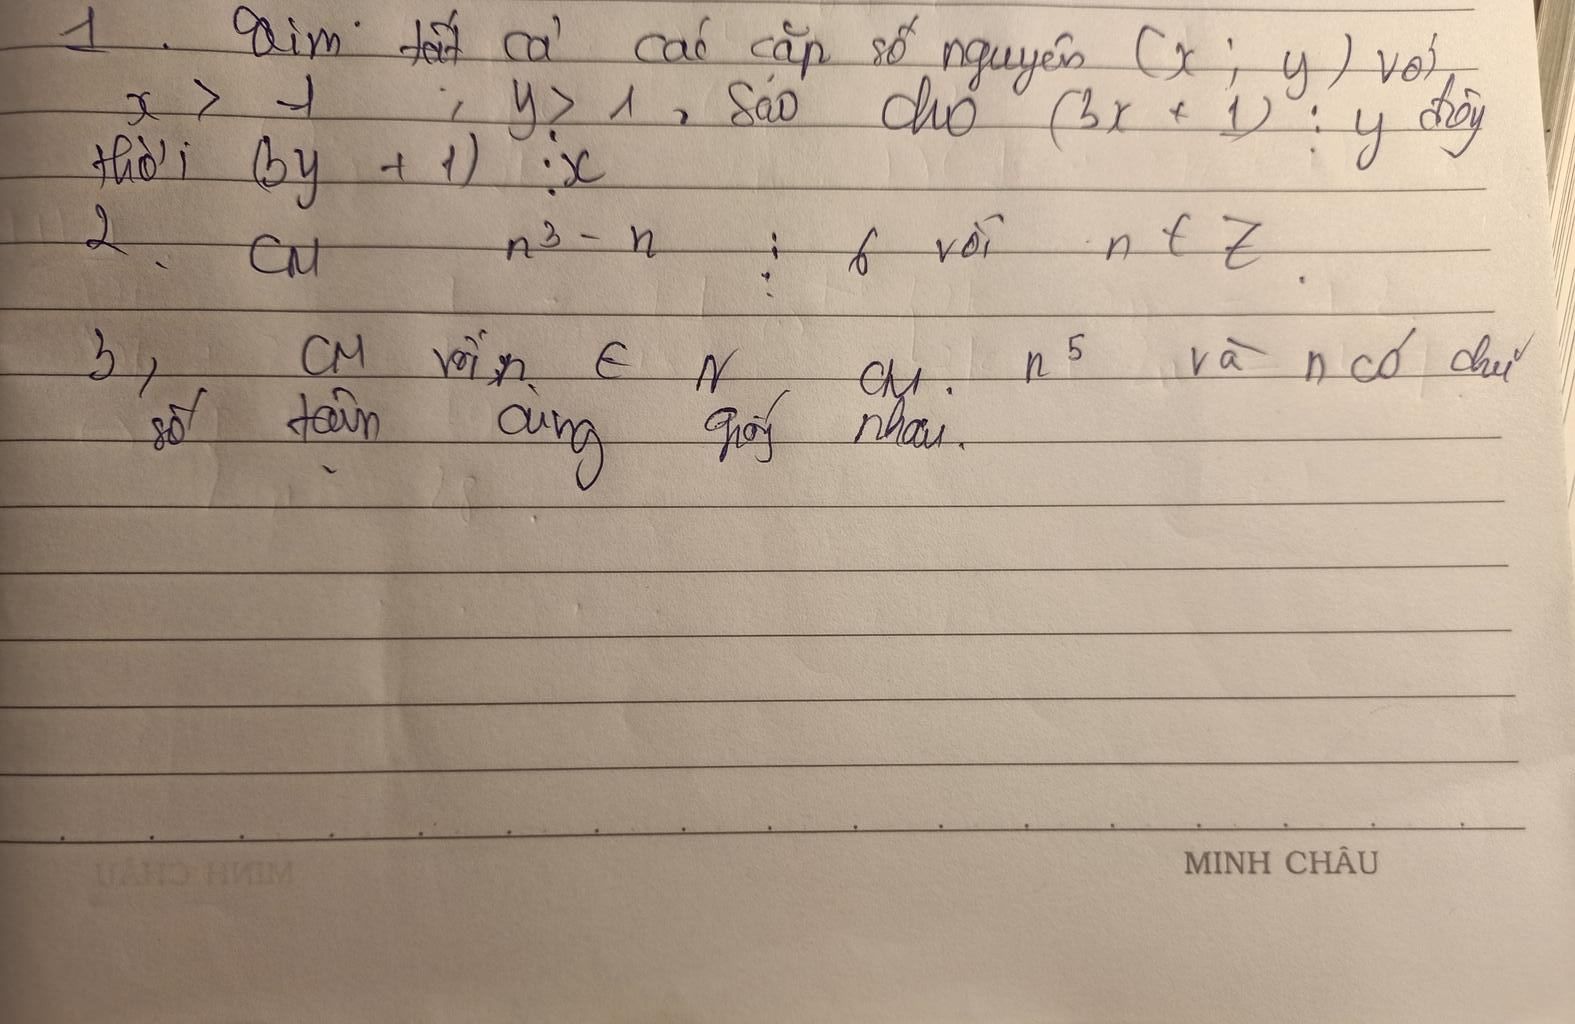 1. Tìm tất cả các cặp số nguyên (x; y) với
x > 1 , y > 1, sao cho (3x + 1) ⋮ y đồng
thời (3y + 1) ⋮ x
2. CM n³ - n ⋮ 6 với n ∈ Z.
3, CM với n ∈ N CM. n⁵ và n có chữ
số tận cùng giống nhau.
MINH CHÂU